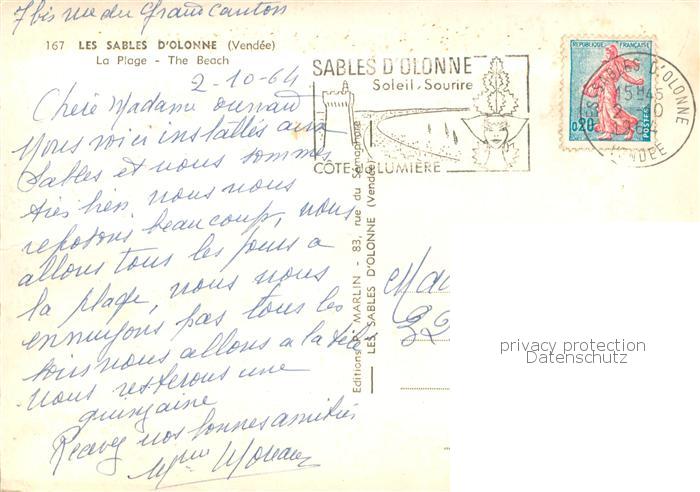 7 bis rue du Grand Canton
167 LES SABLES D'OLONNE (Vendée)
La Plage - The Beach
2-10-64
Chère Madame
Nous voici installés aux
Sables et nous sommes
très bien, nous nous
reposons beaucoup, nous
allons tous les jours a
la plage, nous nous
ennuyons pas tous les
soirs nous allons a la télé
nous resterons une
quinzaine
Recevez nos bonnes amitiés
Mme Moreau
SABLES D'OLONNE
Soleil - Sourire
CÔTE DE LUMIÈRE
REPUBLIQUE FRANÇAISE
0,20
POSTES
LES SABLES D'OLONNE
15H45
VENDEE
Editions P. MARLIN - 83, rue du Sémaphore
LES SABLES D'OLONNE (Vendée)
32
privacy protection
Datenschutz